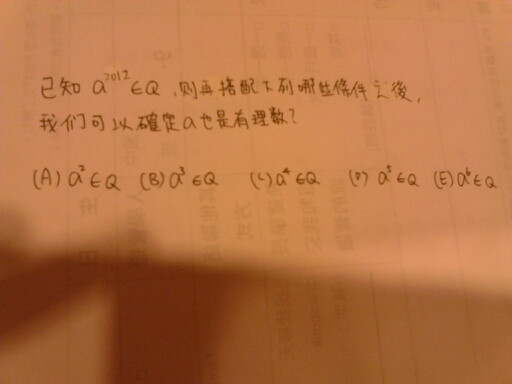 已知 a²⁰¹² ∈ Q ,則再搭配下列哪些條件之後,
我们可以確定a也是有理数?
(A) a² ∈ Q (B) a³ ∈ Q (C) a⁴ ∈ Q (D) a⁵ ∈ Q (E) a⁶ ∈ Q